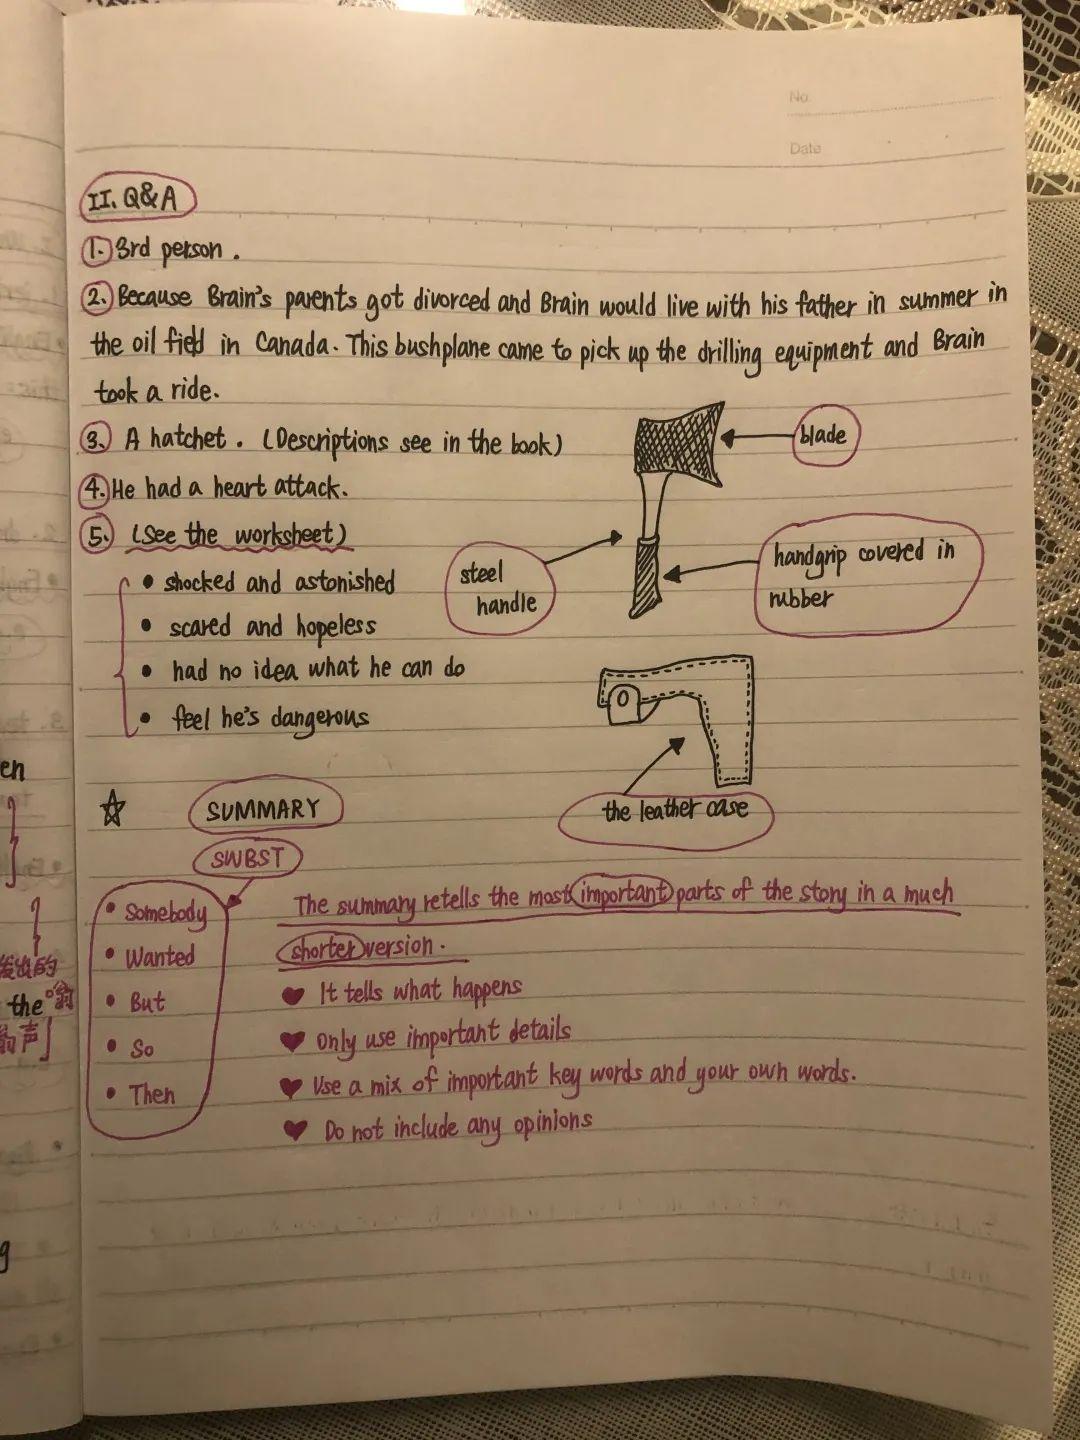 No.
Date
II. Q&A
1. 3rd person.
2. Because Brain's parents got divorced and Brain would live with his father in summer in
the oil field in Canada. This bushplane came to pick up the drilling equipment and Brain
took a ride.
3. A hatchet. (Descriptions see in the book)
blade
4. He had a heart attack.
5. (See the worksheet)
• shocked and astonished
• scared and hopeless
• had no idea what he can do
• feel he's dangerous
steel
handle
handgrip covered in
rubber
the leather case
☆ SUMMARY
SWBST
• Somebody
• Wanted
• But
• So
• Then
The summary retells the most important parts of the story in a much
shorter version.
♥ It tells what happens
♥ Only use important details
♥ Use a mix of important key words and your own words.
♥ Do not include any opinions
en
发出的
the
声]
g